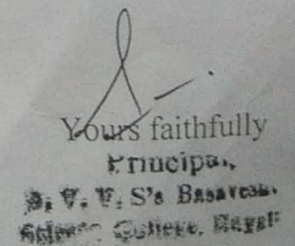 Yours faithfully
Principal,
B. V. V. S's Basavesh.
Science College,